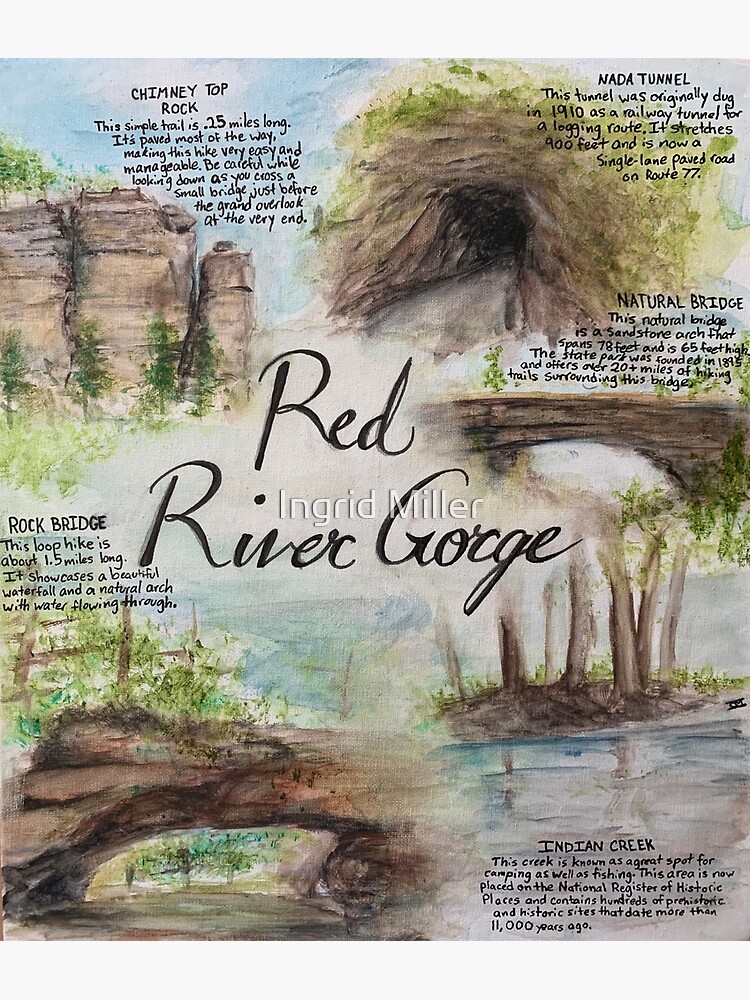 CHIMNEY TOP
ROCK
This simple trail is .25 miles long.
It's paved most of the way,
making this hike very easy and
manageable. Be careful while
looking down as you cross a
small bridge just before
the grand overlook
at the very end.
NADA TUNNEL
This tunnel was originally dug
in 1910 as a railway tunnel for
a logging route. It stretches
900 feet and is now a
Single-lane paved road
on Route 77.
NATURAL BRIDGE
This natural bridge
is a sandstone arch that
spans 78 feet and is 65 feet high.
The state park was founded in 1895
and offers over 20+ miles of hiking
trails surrounding this bridge.
Red
River Gorge
Ingrid Miller
ROCK BRIDGE
This loop hike is
about 1.5 miles long.
It showcases a beautiful
waterfall and a natural arch
with water flowing through.
INDIAN CREEK
This creek is known as a great spot for
camping as well as fishing. This area is now
placed on the National Register of Historic
Places and contains hundreds of prehistoric
and historic sites that date more than
11,000 years ago.